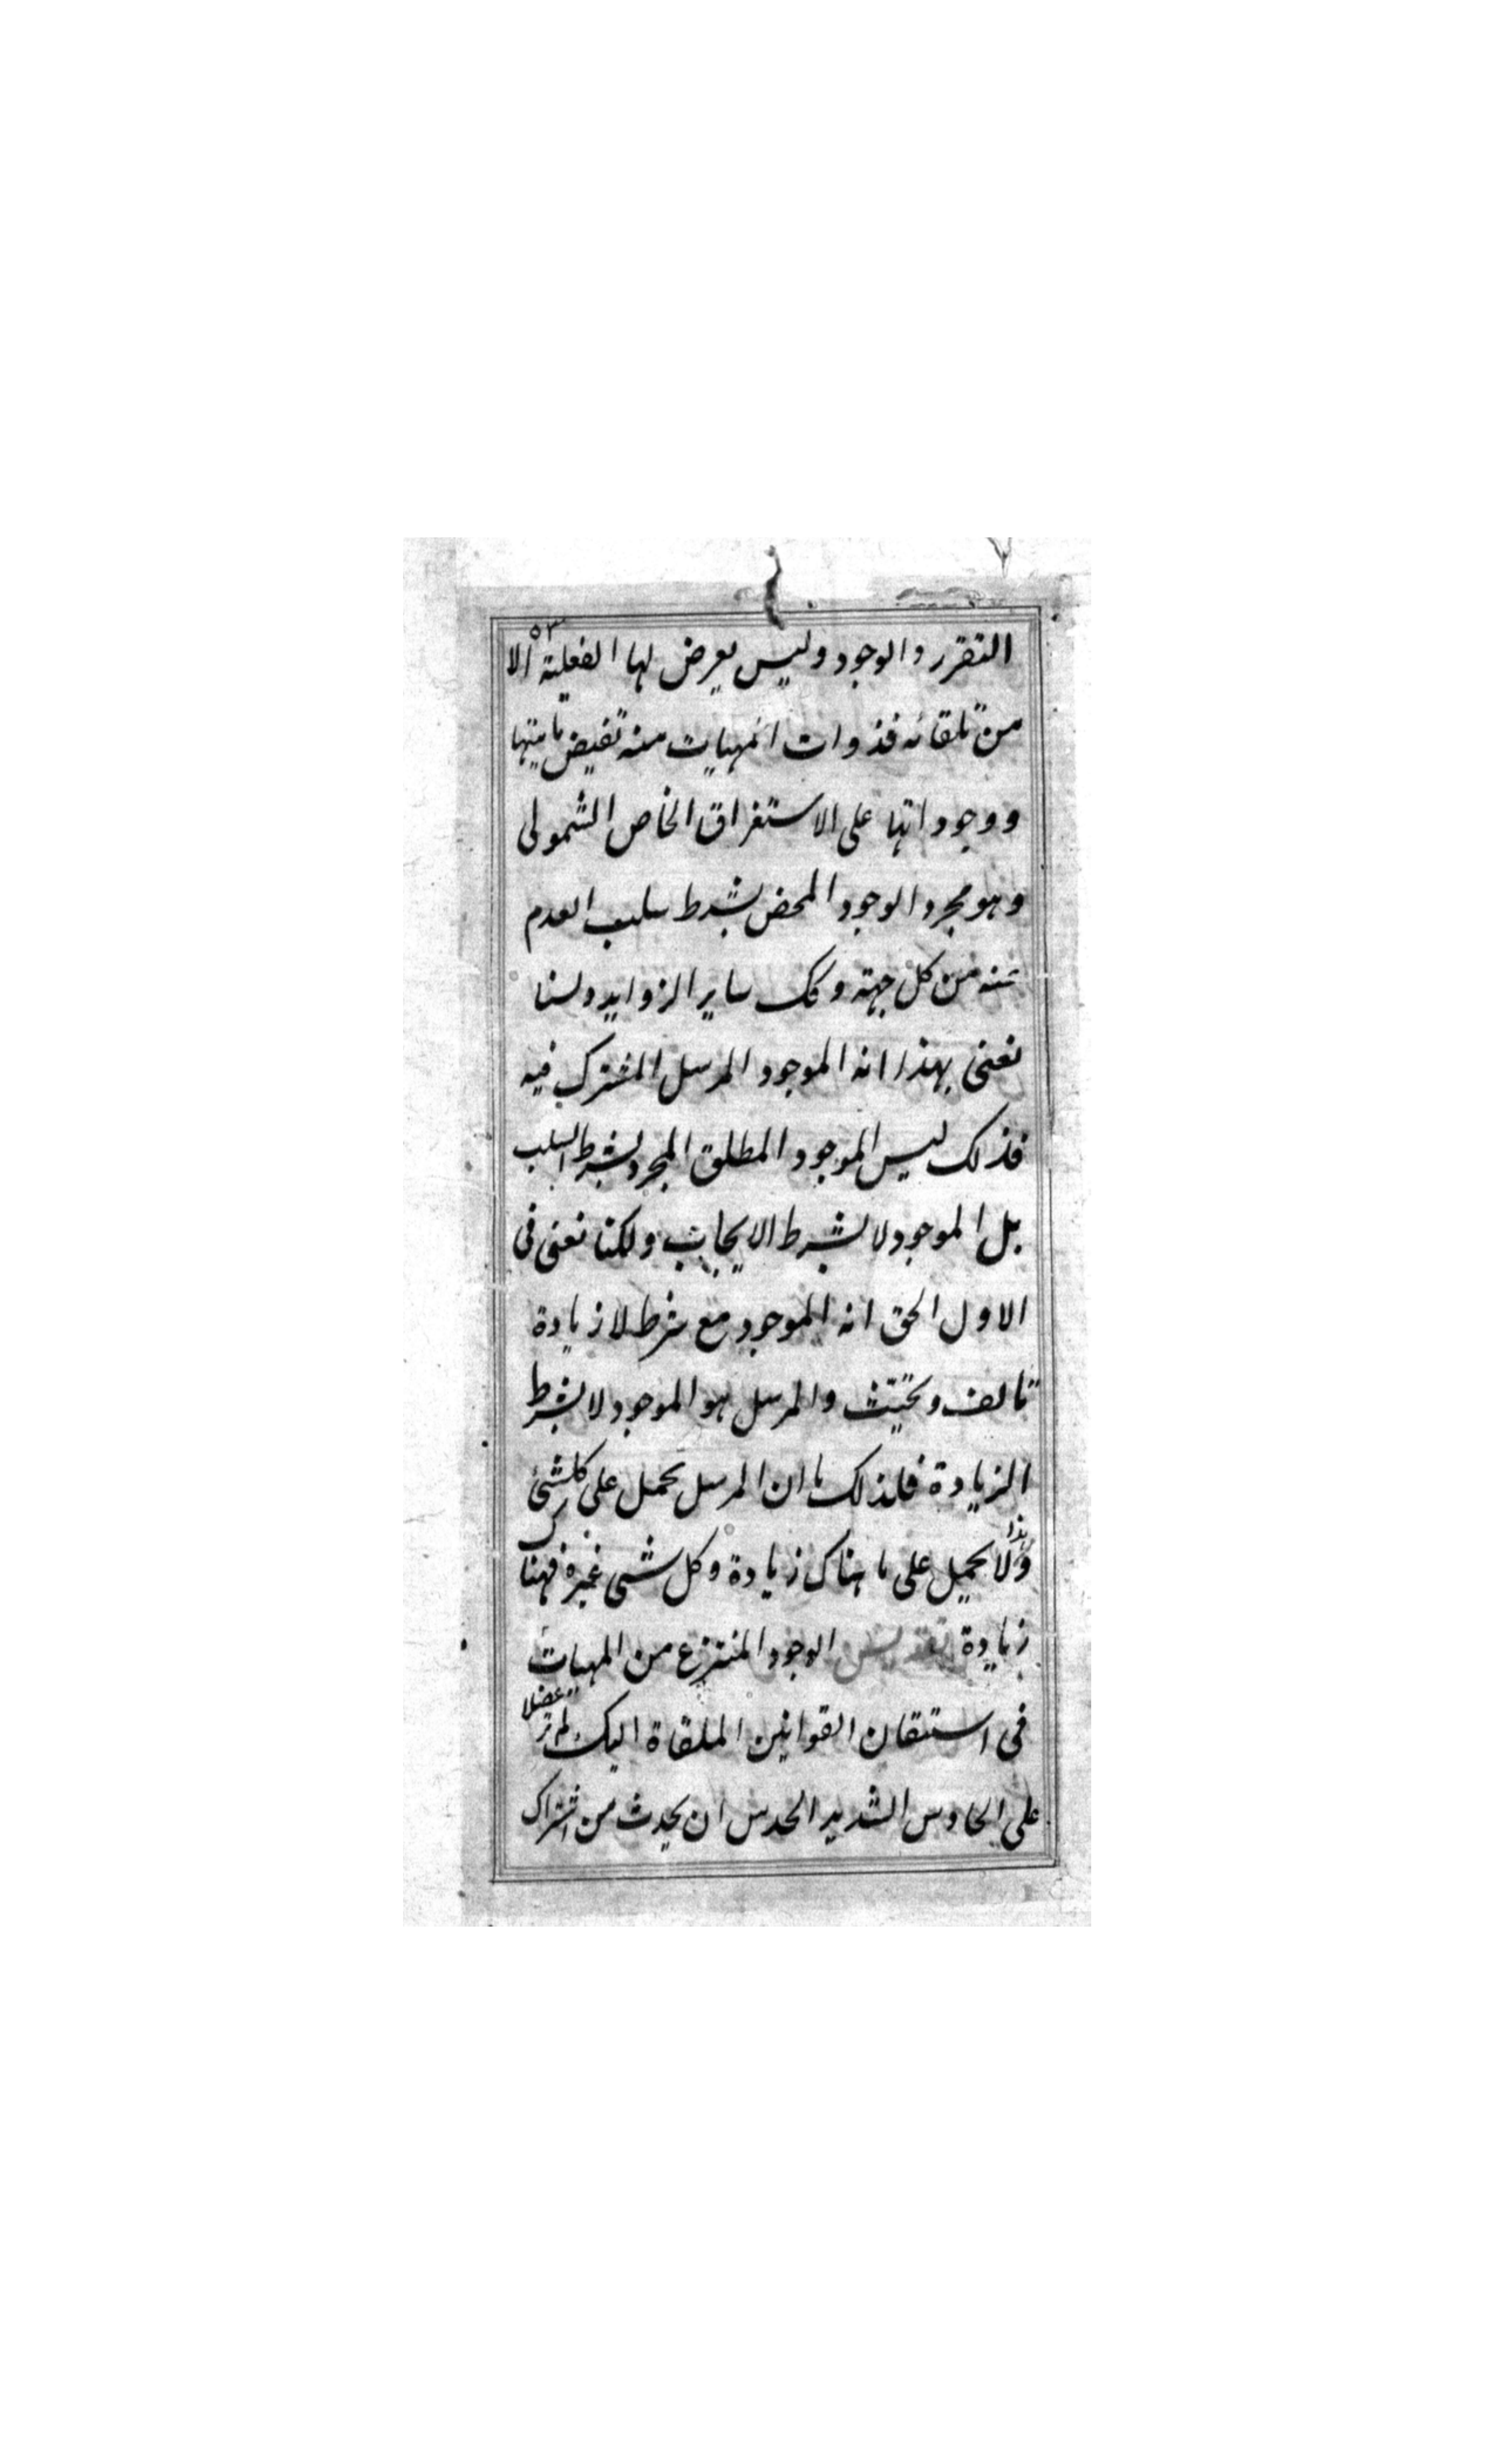 ٥٣
التقرر والوجود وليس يعرض لها الفعلية الا
من تلقائه فذوات المهيات منه تفيض ماهيتها
ووجوداتها على الاستغراق الخاص الشمولى
وهو مجرد الوجود المحض بشرط سلب العدم
عنه من كل جهة وكك ساير الزوايد ولسنا
نعنى بهذا انه الموجود المرسل المشترك فيه
فذلك ليس الموجود المطلق المجرد بشرط السلب
بل الموجود لا بشرط الايجاب ولكنا نعنى فى
الاول الحق انه الموجود مع شرط لا زيادة
تالف وتحيّث والمرسل هو الموجود لا بشرط
الزيادة فلذلك ما ان المرسل يحمل على كل شئ
وهذا لا يحمل على ما هناك زيادة وكل شى غيره فهنا
زيادة الوجود المنتزع من المهيات
فى استتقان القوانين الملقاة اليك لم
على الحادس الشديد الحدس ان يحدث من اشتراك